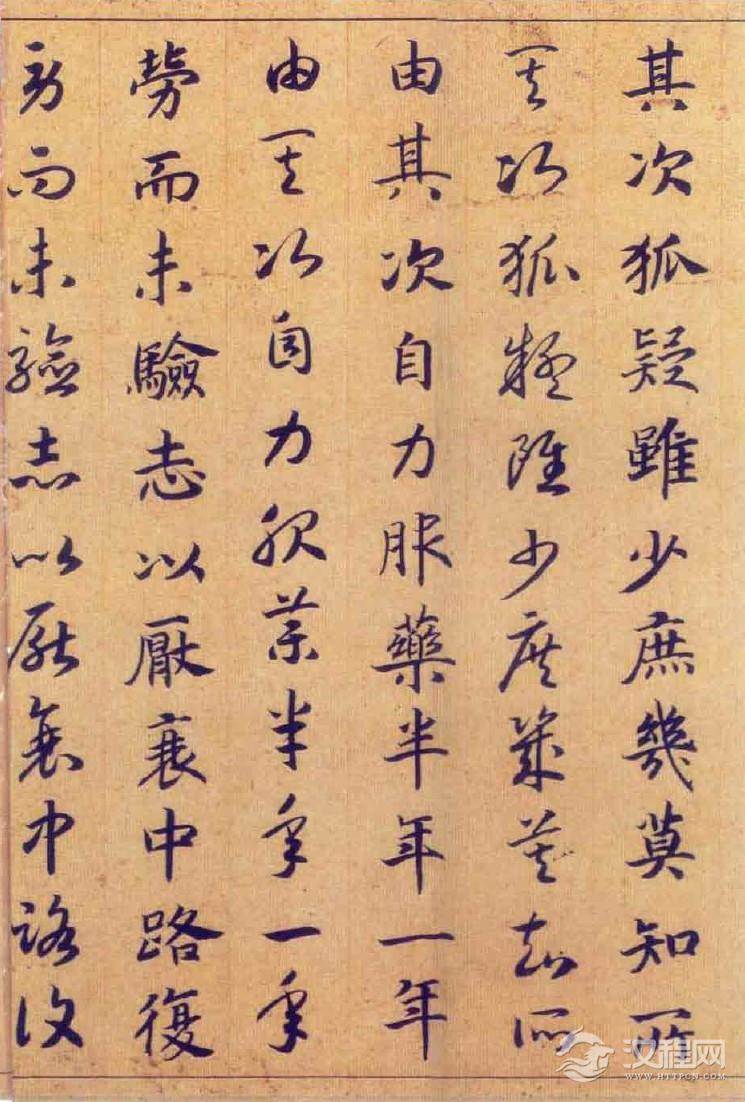 其次狐疑雖少庶幾莫知所
其次狐疑雖少庶幾莫知所
由其次自力服藥半年一年
由其次自力服藥半年一年
勞而未驗志以厭衰中路復
勞而未驗志以厭衰中路復
汉程网
WWW.HTTPCN.COM